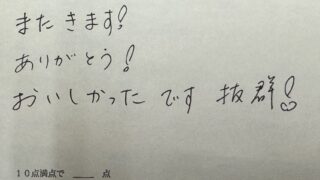 またきます!
ありがとう!
おいしかったです 抜群!
10点満点で ＿＿ 点